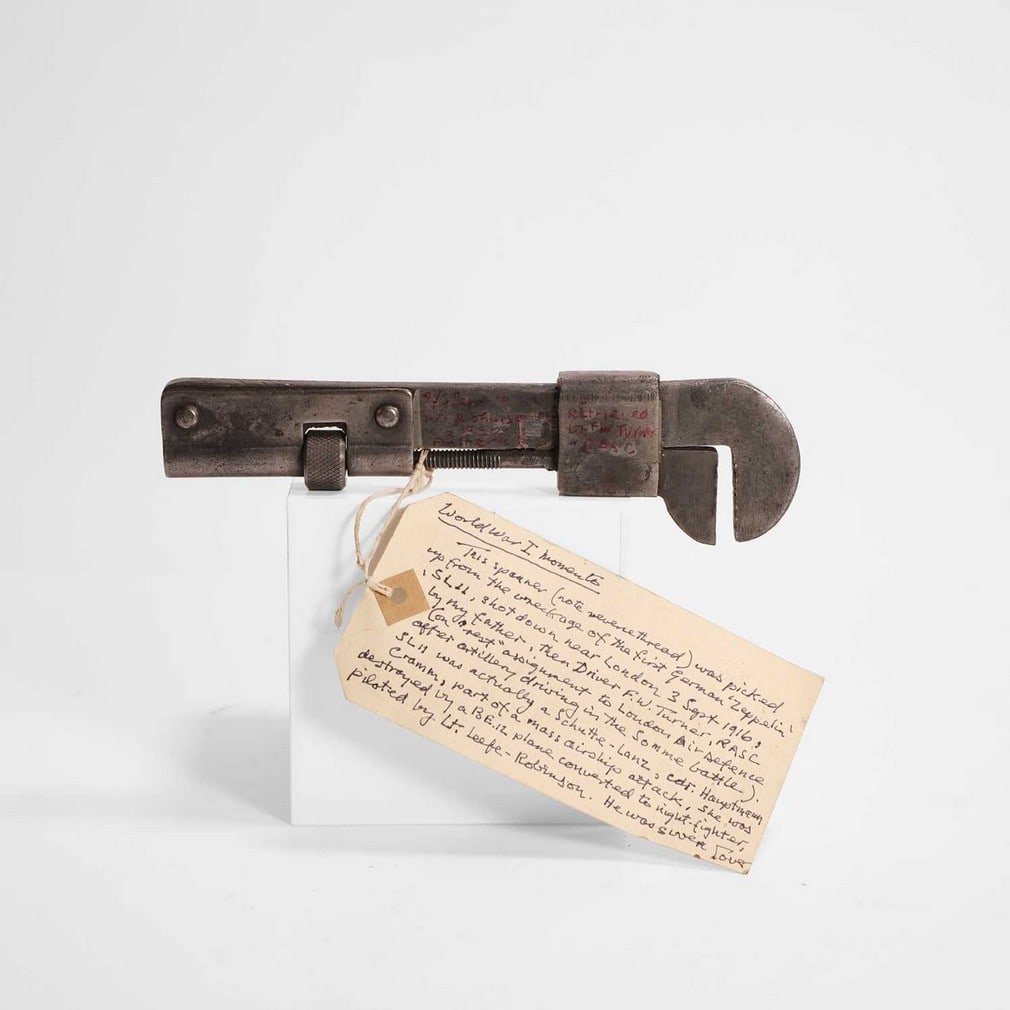 RETRIEVED
F.W. TURNER
RASC
World War I Momento
This spanner (note reverse thread) was picked
up from the wreckage of the first German "Zeppelin"
, SL11, shot down near London 3 Sept 1916,
by my father, then Driver F.W. Turner, RASC
(on "a rest" assignment to London Air Defence
after artillery driving in the Somme battle).
SL11 was actually a Schutte-Lanz, cdr. Hauptmann
Cramm, part of a mass airship attack, she was
destroyed by a B.E.12 plane converted to night-fighter,
piloted by Lt. Leefe-Robinson. He was given [over